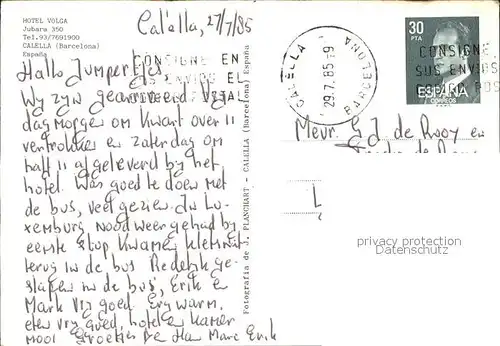 HOTEL VOLGA
Jubara 350
Tel.93/7691900
CALELLA (Barcelona)
España
Calella, 27/7/85
CONSIGNE EN
SUS ENVIOS EL
POSTAL
Hallo Jumpertjes,
Wy zyn gearriveerd. Vrij
dag morgen om kwart over 11
vertrokken en zaterdag om
half 11 afgeleverd by het
hotel. Was goed te doen met
de bus, veel gezien. In Lu-
xemburg noodweer gehad by
eerste stop kwamen kletsnat
terug in de bus Redelyk ge-
slapen in de bus, Erik en
Mark vry goed. Erg warm,
eten vry goed, hotel en kamer
mooi Groetjes Han Marc Erik
Fotografía de J. PLANCHART - CALELLA (Barcelona) España
CALELLA
29.7.85
BARCELONA
30
PTA
ESPAÑA
CORREOS
CONSIGNE
SUS ENVIOS
POS
Mevr. G.J de Rooy en
privacy protection
Datenschutz